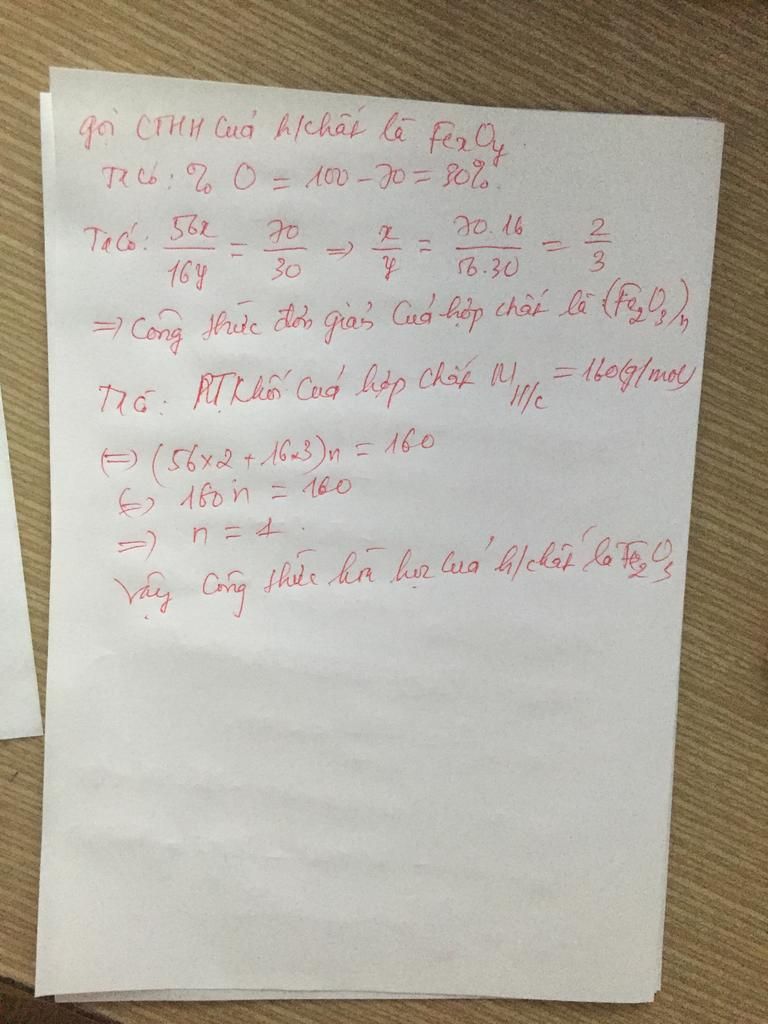 gọi CTHH của h/chất là FexOy
Ta có: % O = 100 - 70 = 30%.
Ta có: 56x/16y = 70/30 => x/y = 70.16/56.30 = 2/3
=> Công thức đơn giản của hợp chất là (Fe2O3)n
Ta có: PTKhối của hợp chất M H/c = 160(g/mol)
<=> (56x2 + 16x3)n = 160
<=> 160n = 160
=> n = 1.
Vậy công thức hóa học của h/chất là Fe2O3